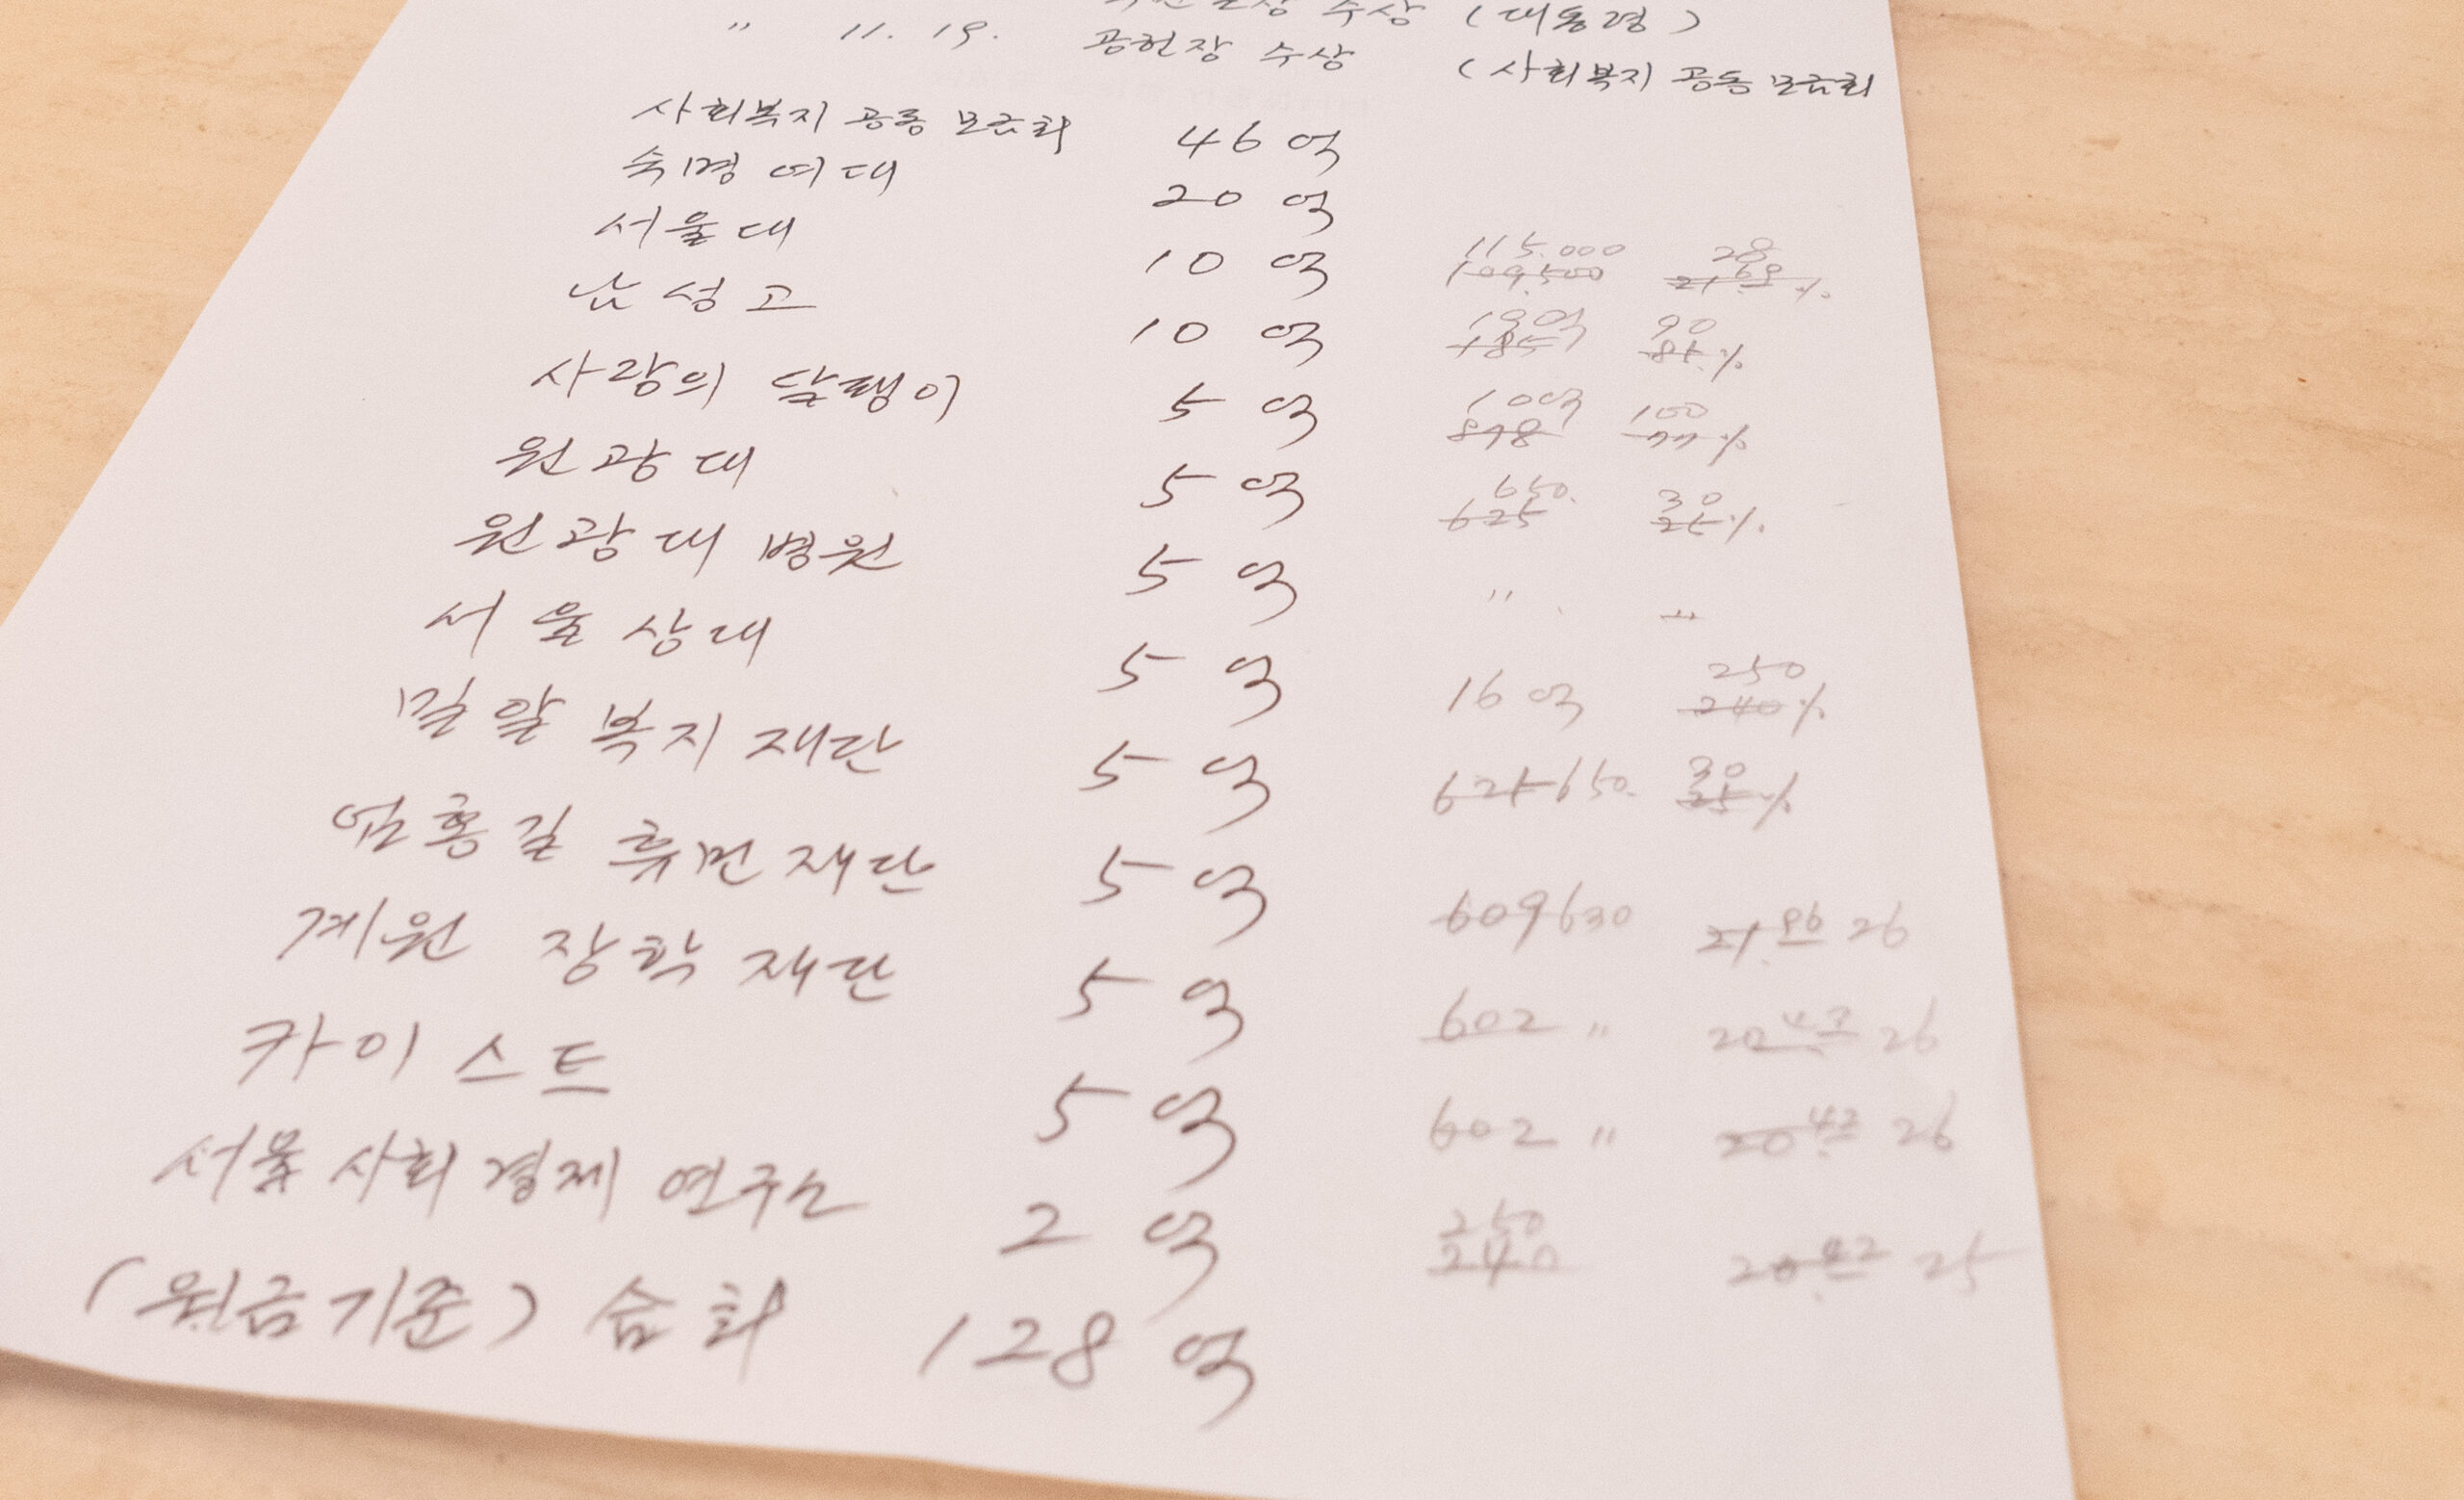 수상 (대통령)
" 11. 19. 공헌장 수상 (사회복지 공동모금회
사회복지 공동모금회 46억
숙명여대 20억
서울대 10억 115.000 109.500 28 %
남성고 10억 190억 185 90 85 %
사랑의 달팽이 5억 100억 898 100 77 %
원광대 5억 650. 625 30 25 %
원광대 병원 5억 " "
서울상대 5억 16억 250 240 %
밀알복지재단 5억 625 650. 30 25 %
엄홍길 휴먼재단 5억 609 630 21.86 26
계원 장학재단 5억 602 " 20.43 26
카이스트 5억 602 " 20.43 26
서울사회경제연구소 2억 250 240 20.42 25
(원금기준) 合計 128억